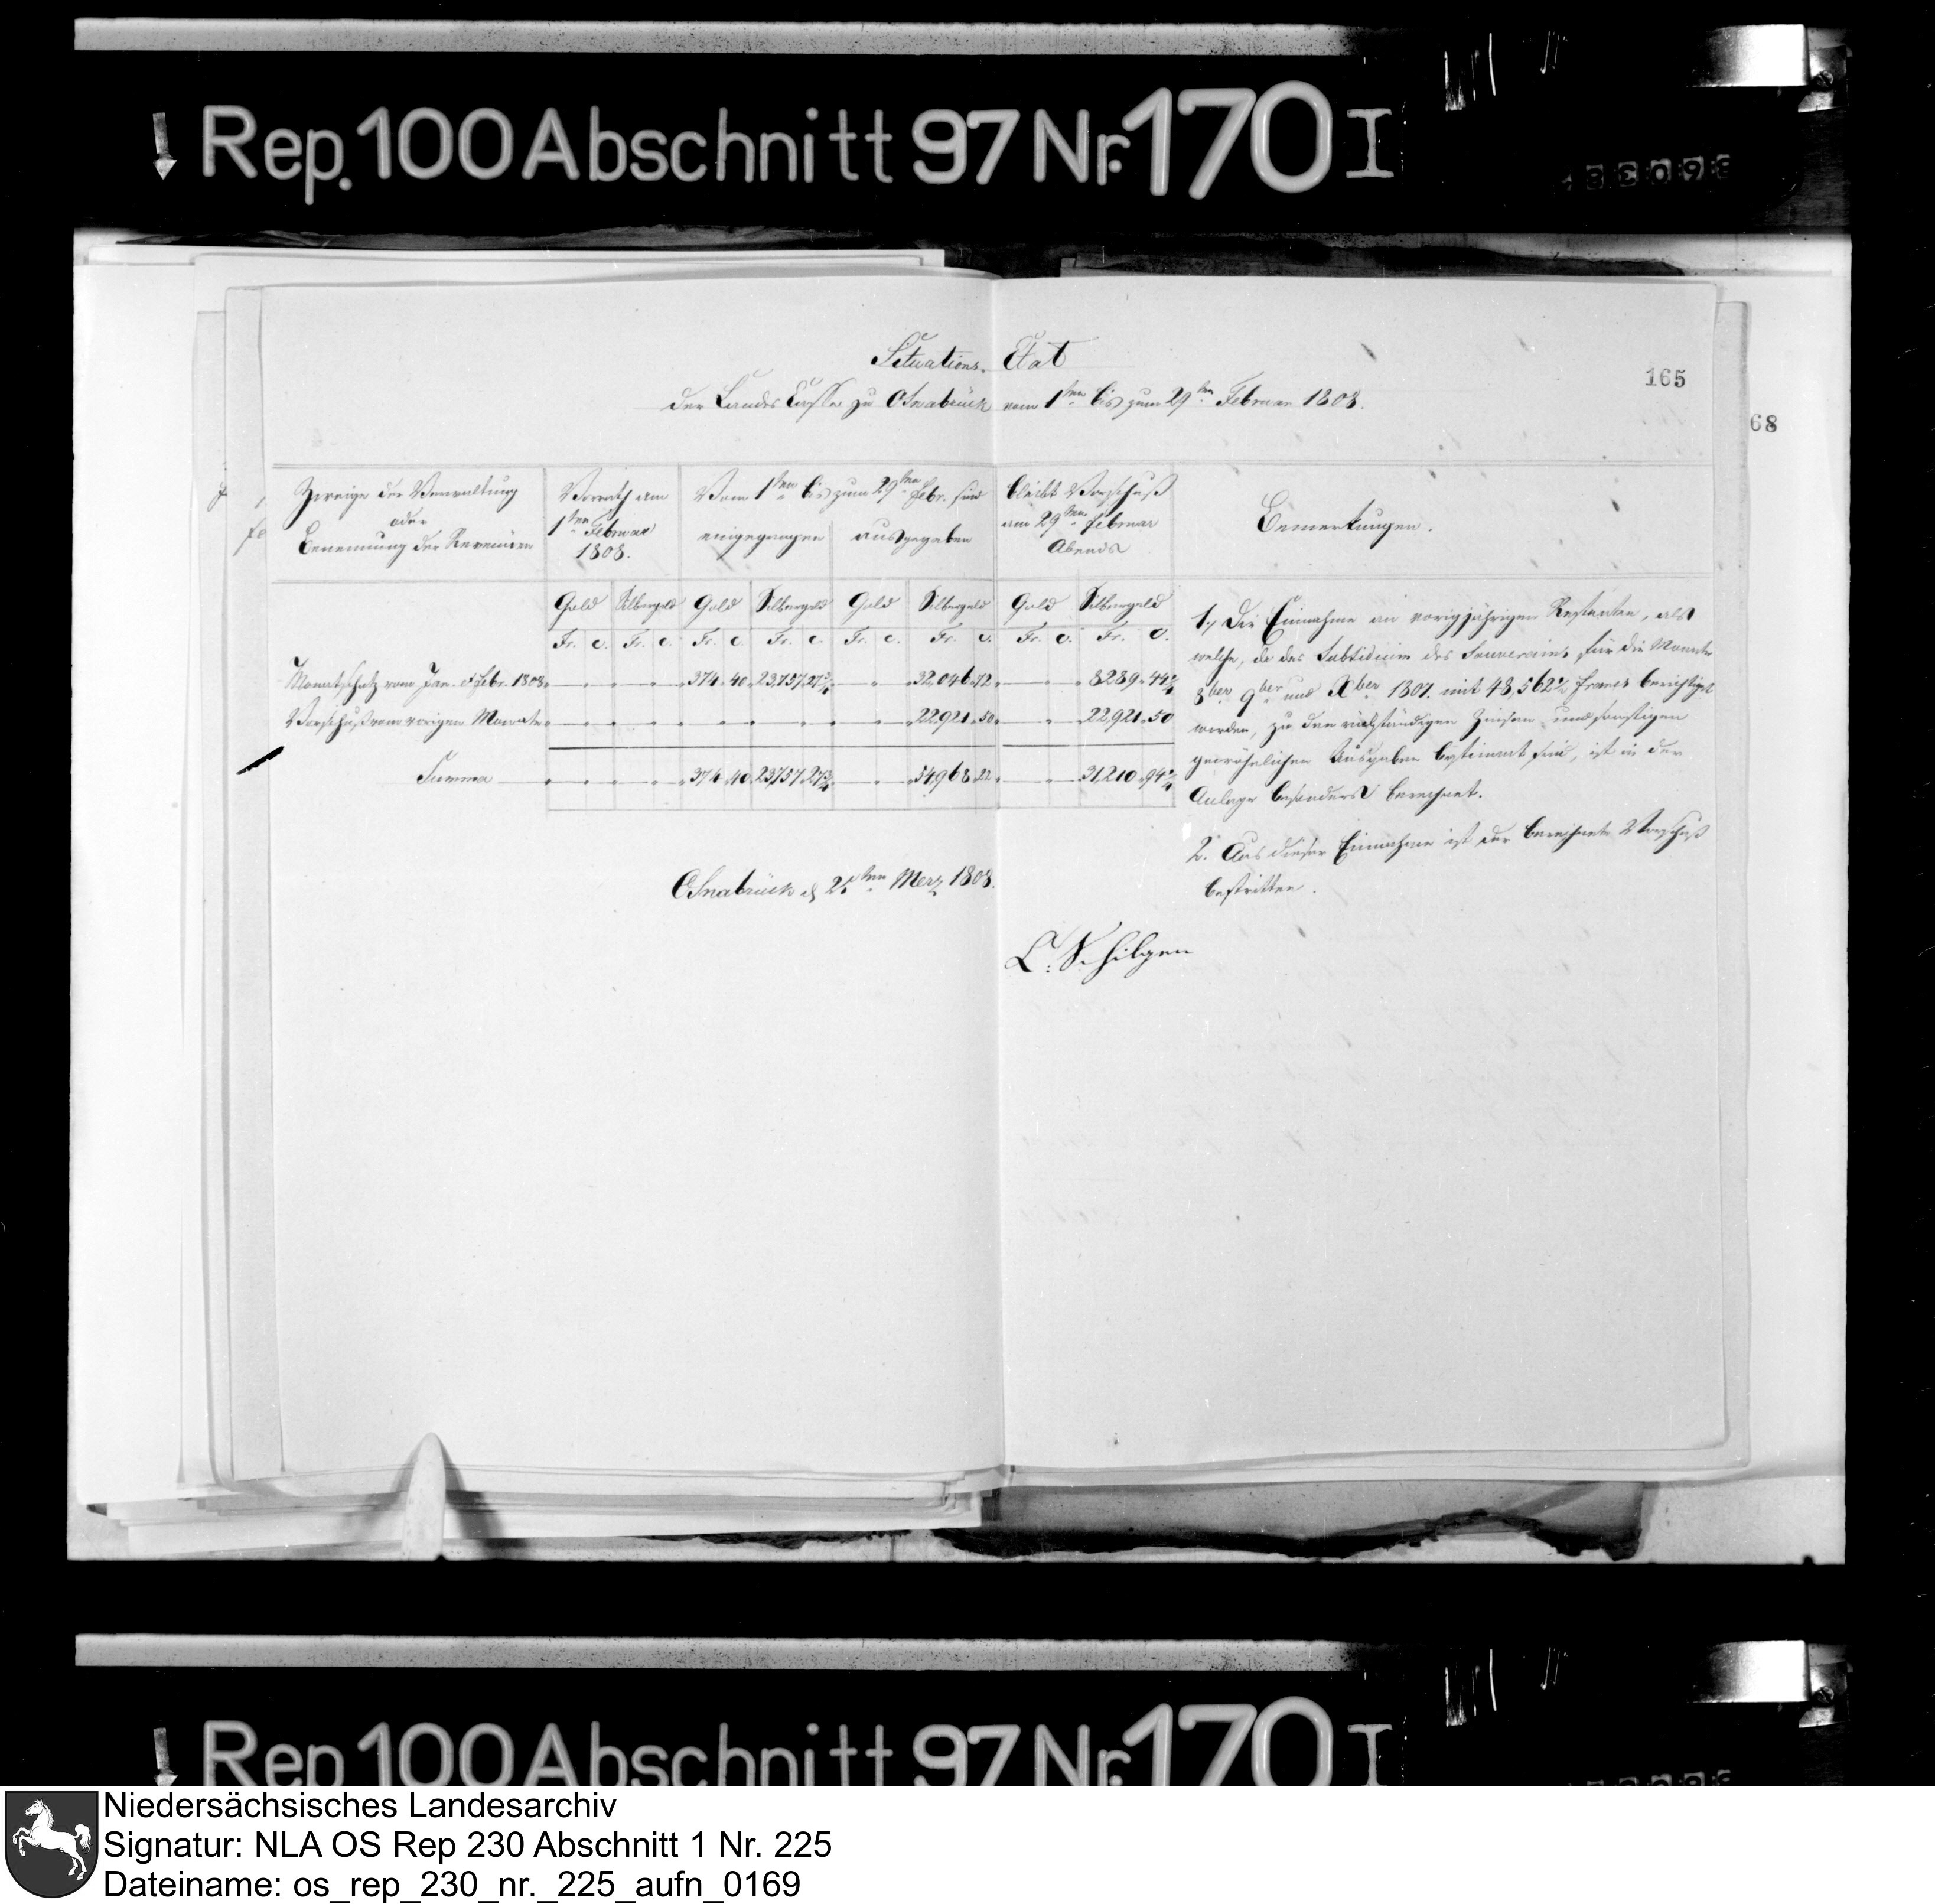 Rep. 100 Abschnitt 97 Nr. 170 I
Situations. Etat
der Landes Casse zu Osnabrück vom 1ten bis zum 29ten Februar 1808.
165
68
Zweige der Verwaltung
oder
Benennung der Revenüen
Vorrath am
1ten Februar
1808.
Vom 1ten bis zum 29ten Febr. sind
eingegangen
ausgegeben
bleibt Vorschuß
am 29ten Februar
Abends
Bemerkungen.
Gold Silbergeld Gold Silbergeld Gold Silbergeld Gold Silbergeld
Fr. c. Fr. c. Fr. c. Fr. c. Fr. c. Fr. c. Fr. c. Fr. c.
Monatschatz vom Jan. et Febr. 1808. 374. 40. 23,757. 27 3/4 32,046. 72. 8289. 44 1/4
Vorschuß vom vorigen Monate 22921. 50. 22,921. 50
Summa 374. 40. 23,757. 27 3/4 54,968. 22. 31,210. 94 1/4
1., Die Einnahme an vorigjährigen Restanten, als
welche, da das Subsidium des Souverains für die Monate
8ber 9ber und Xber 1807. mit 48,562 1/2 francs berichtiget
worden, zu den rückständigen Zinsen und sonstigen
gewöhnlichen Ausgaben bestimmt sind, ist in der
Anlage besonders berechnet.
2. Aus dieser Einnahme ist der berechnete Vorschuß
bestritten.
Osnabrück d 2ten Merz 1808.
C. Schilgen
Rep. 100 Abschnitt 97 Nr. 170 I
Niedersächsisches Landesarchiv
Signatur: NLA OS Rep 230 Abschnitt 1 Nr. 225
Dateiname: os_rep_230_nr._225_aufn_0169